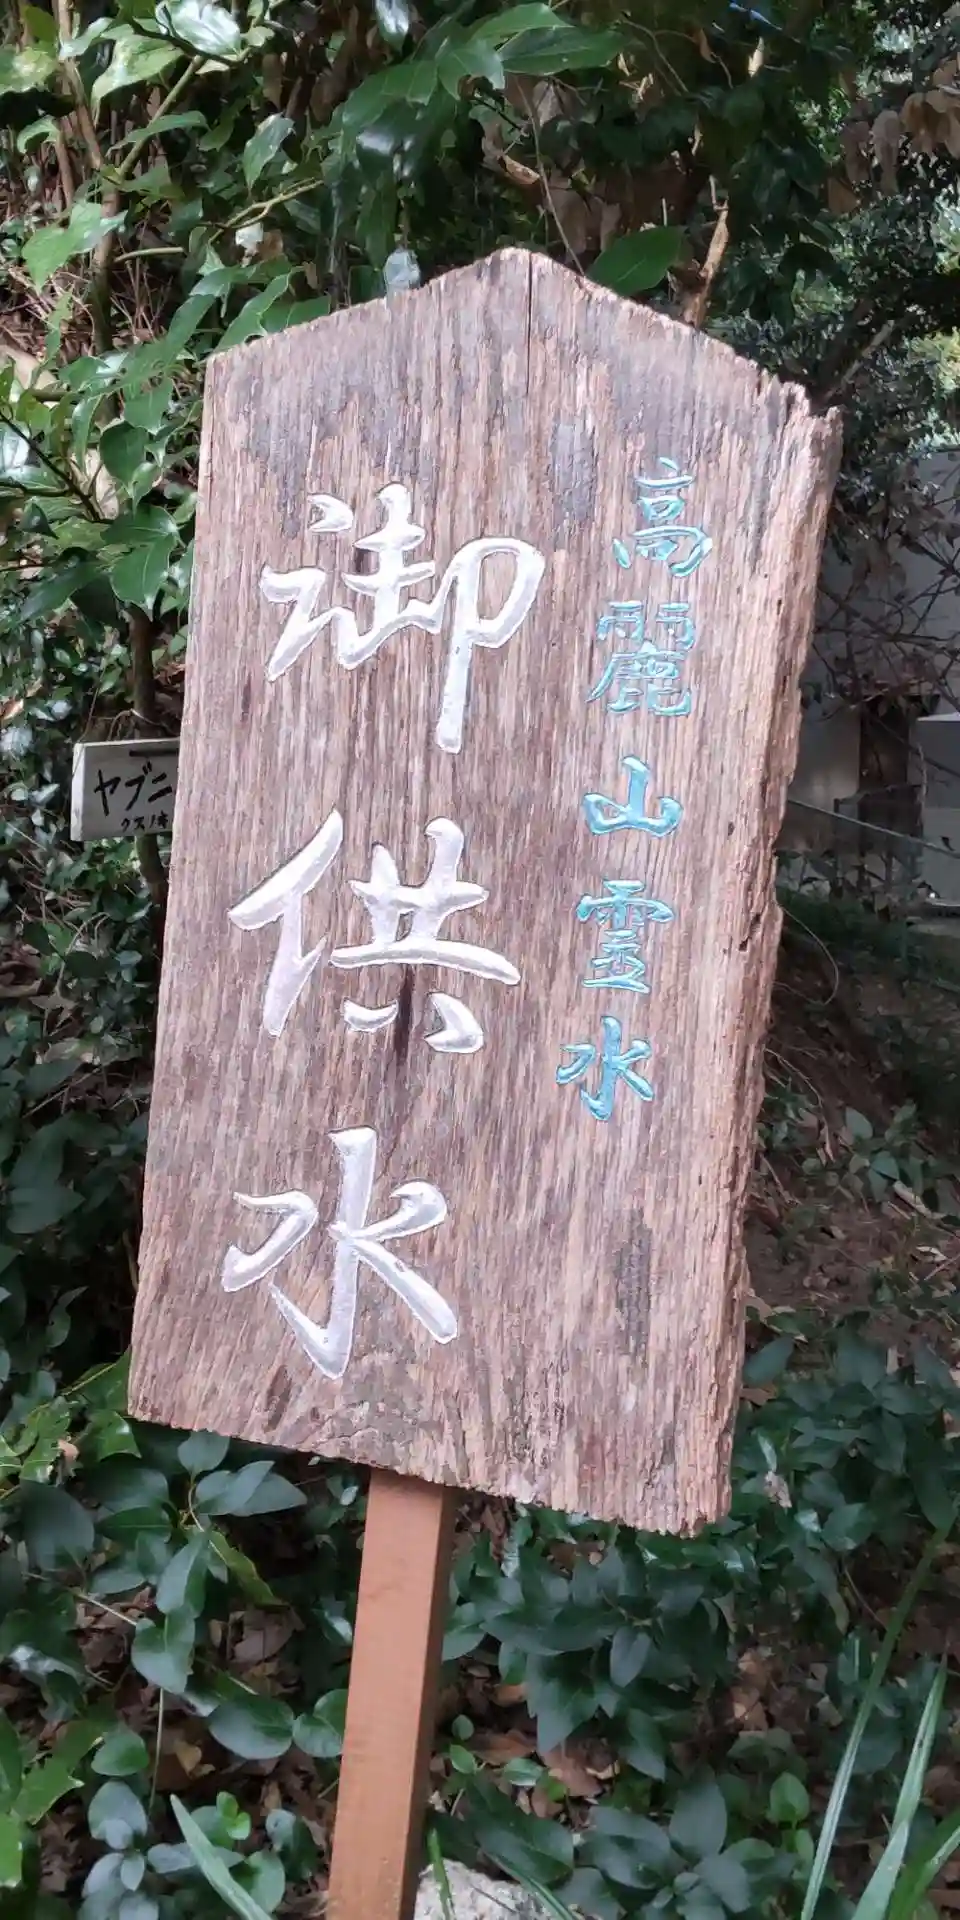 高麗山霊水
御供水
ヤブニ
クスノキ